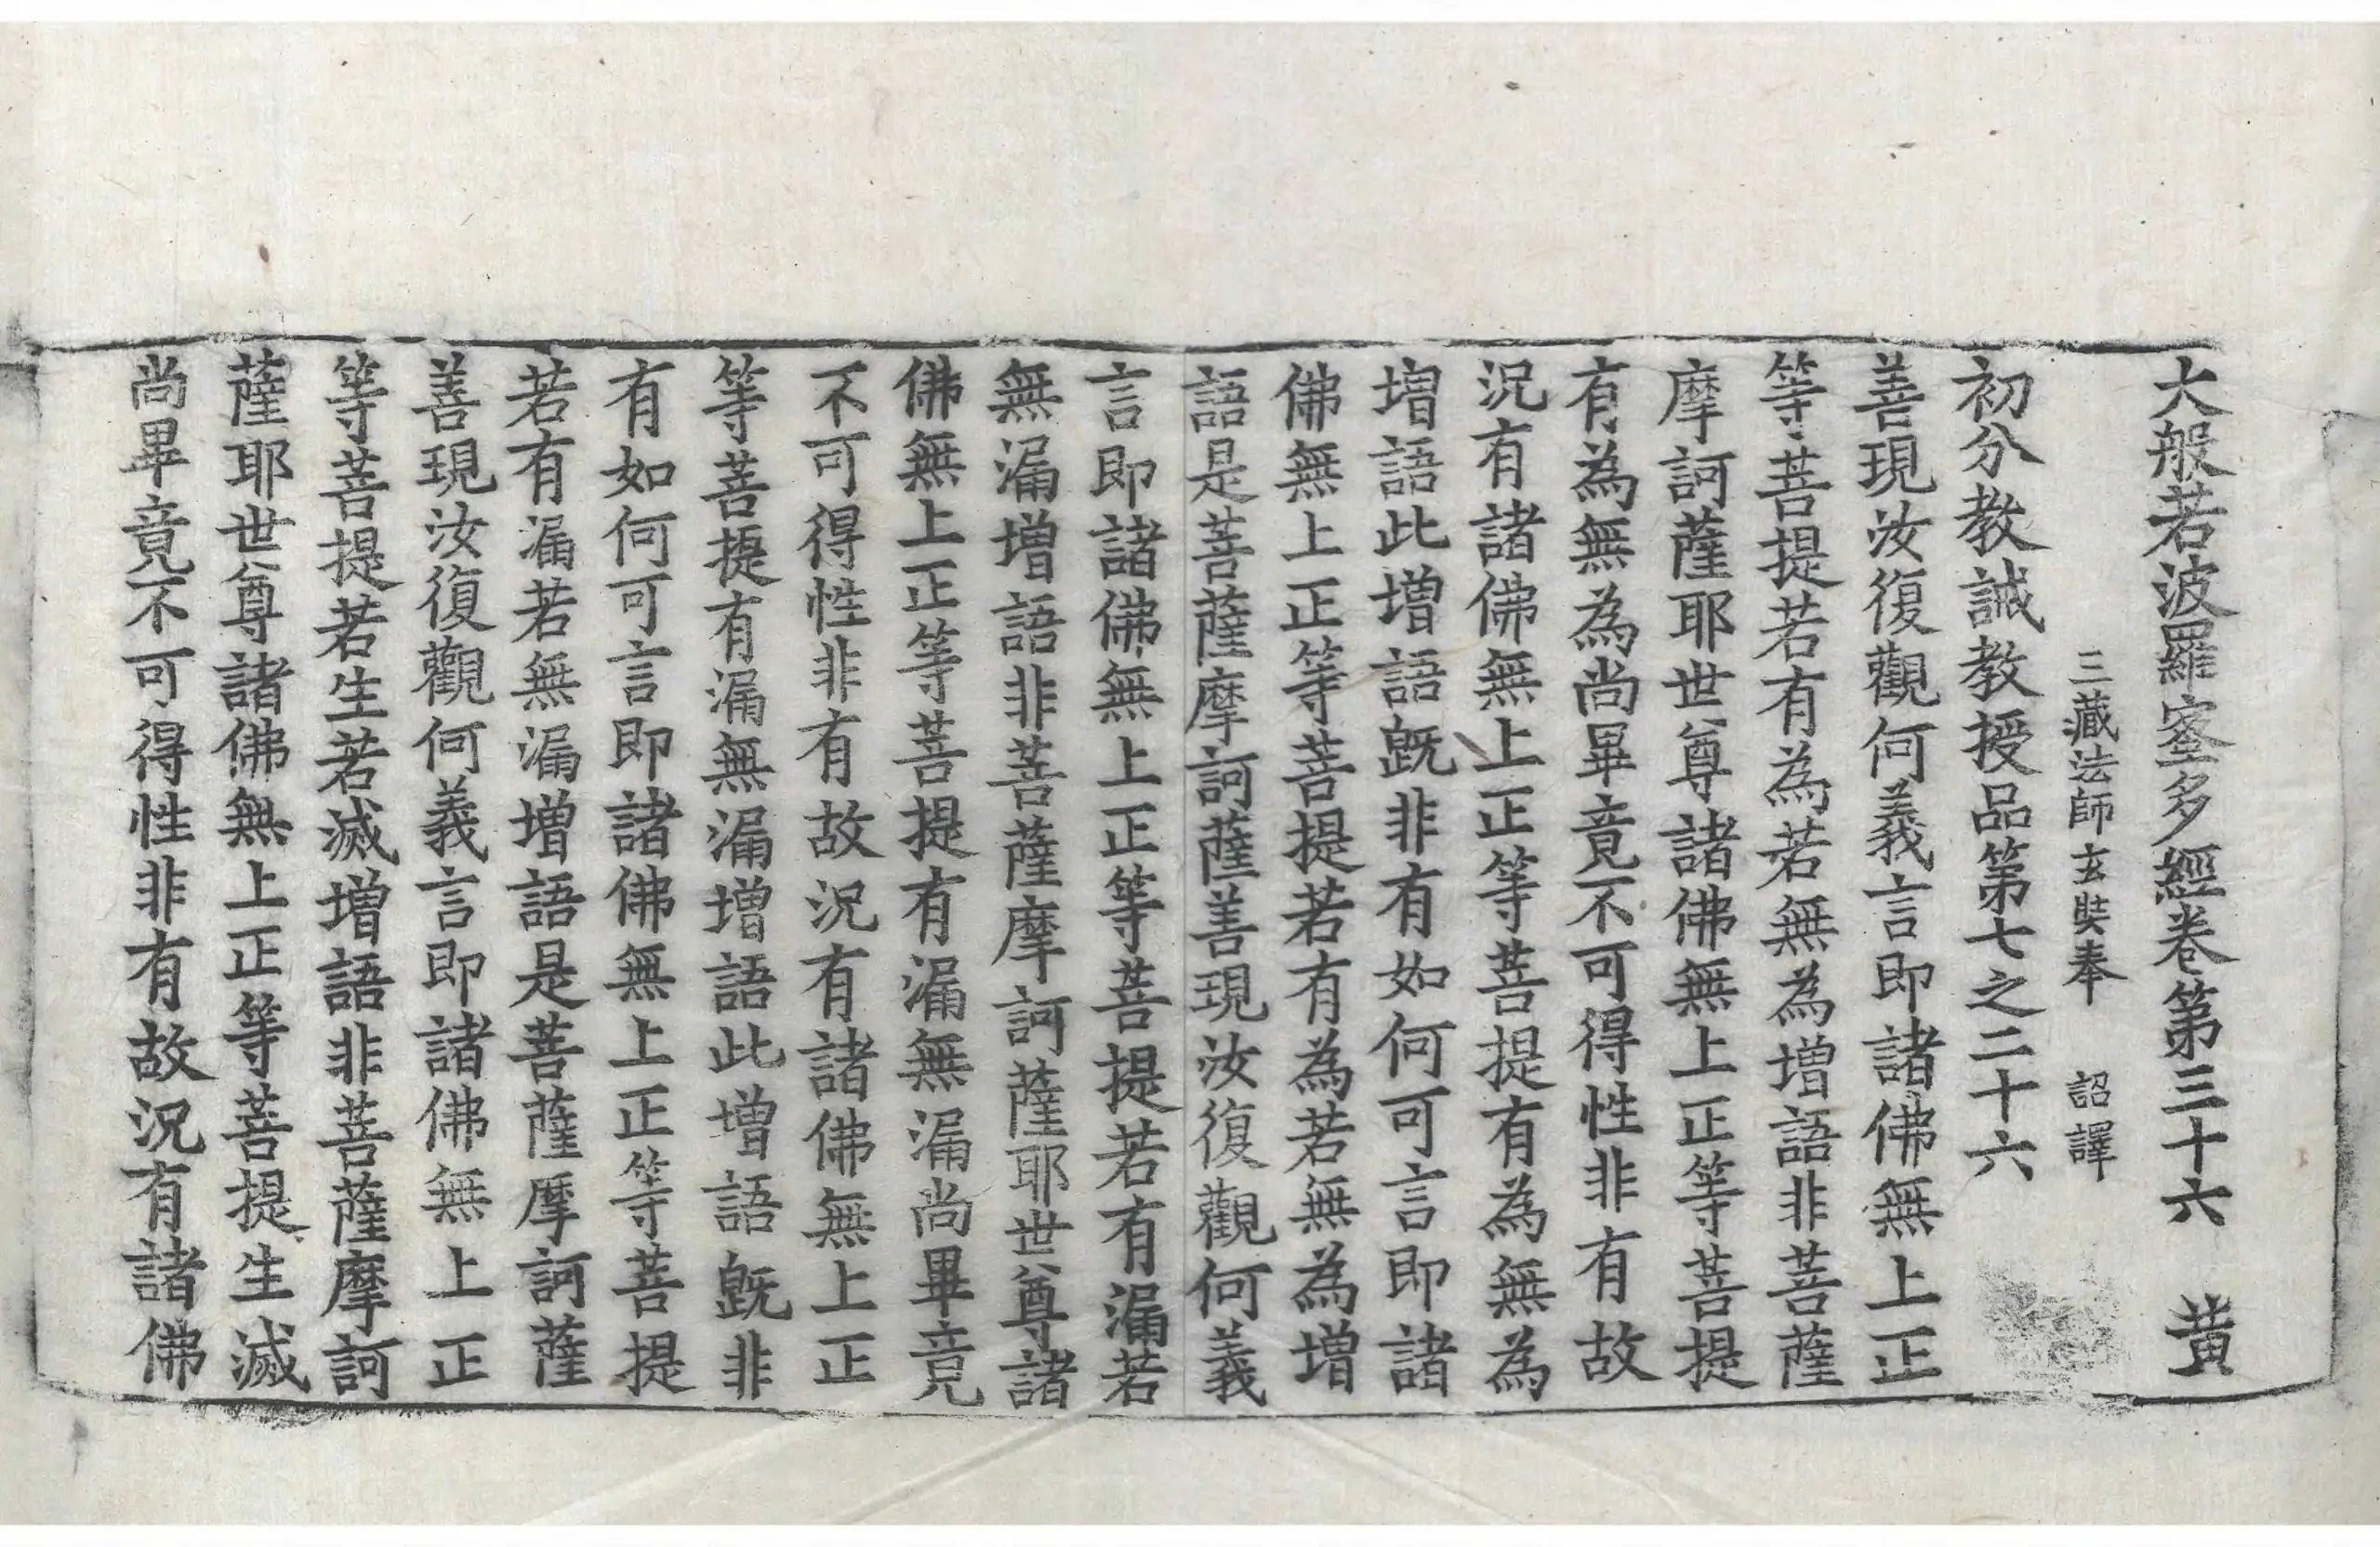 大般若波羅蜜多經卷第三十六　黃
三藏法師玄奘奉　詔譯
初分教誡教授品第七之二十六
善現汝復觀何義言即諸佛無上正
等菩提若有為若無為增語非菩薩
摩訶薩耶世尊諸佛無上正等菩提
有為無為尚畢竟不可得性非有故
況有諸佛無上正等菩提有為無為
增語此增語既非有如何可言即諸
佛無上正等菩提若有為若無為增
語是菩薩摩訶薩善現汝復觀何義
言即諸佛無上正等菩提若有漏若
無漏增語非菩薩摩訶薩耶世尊諸
佛無上正等菩提有漏無漏尚畢竟
不可得性非有故況有諸佛無上正
等菩提有漏無漏增語此增語既非
有如何可言即諸佛無上正等菩提
若有漏若無漏增語是菩薩摩訶薩
善現汝復觀何義言即諸佛無上正
等菩提若生若滅增語非菩薩摩訶
薩耶世尊諸佛無上正等菩提生滅
尚畢竟不可得性非有故況有諸佛